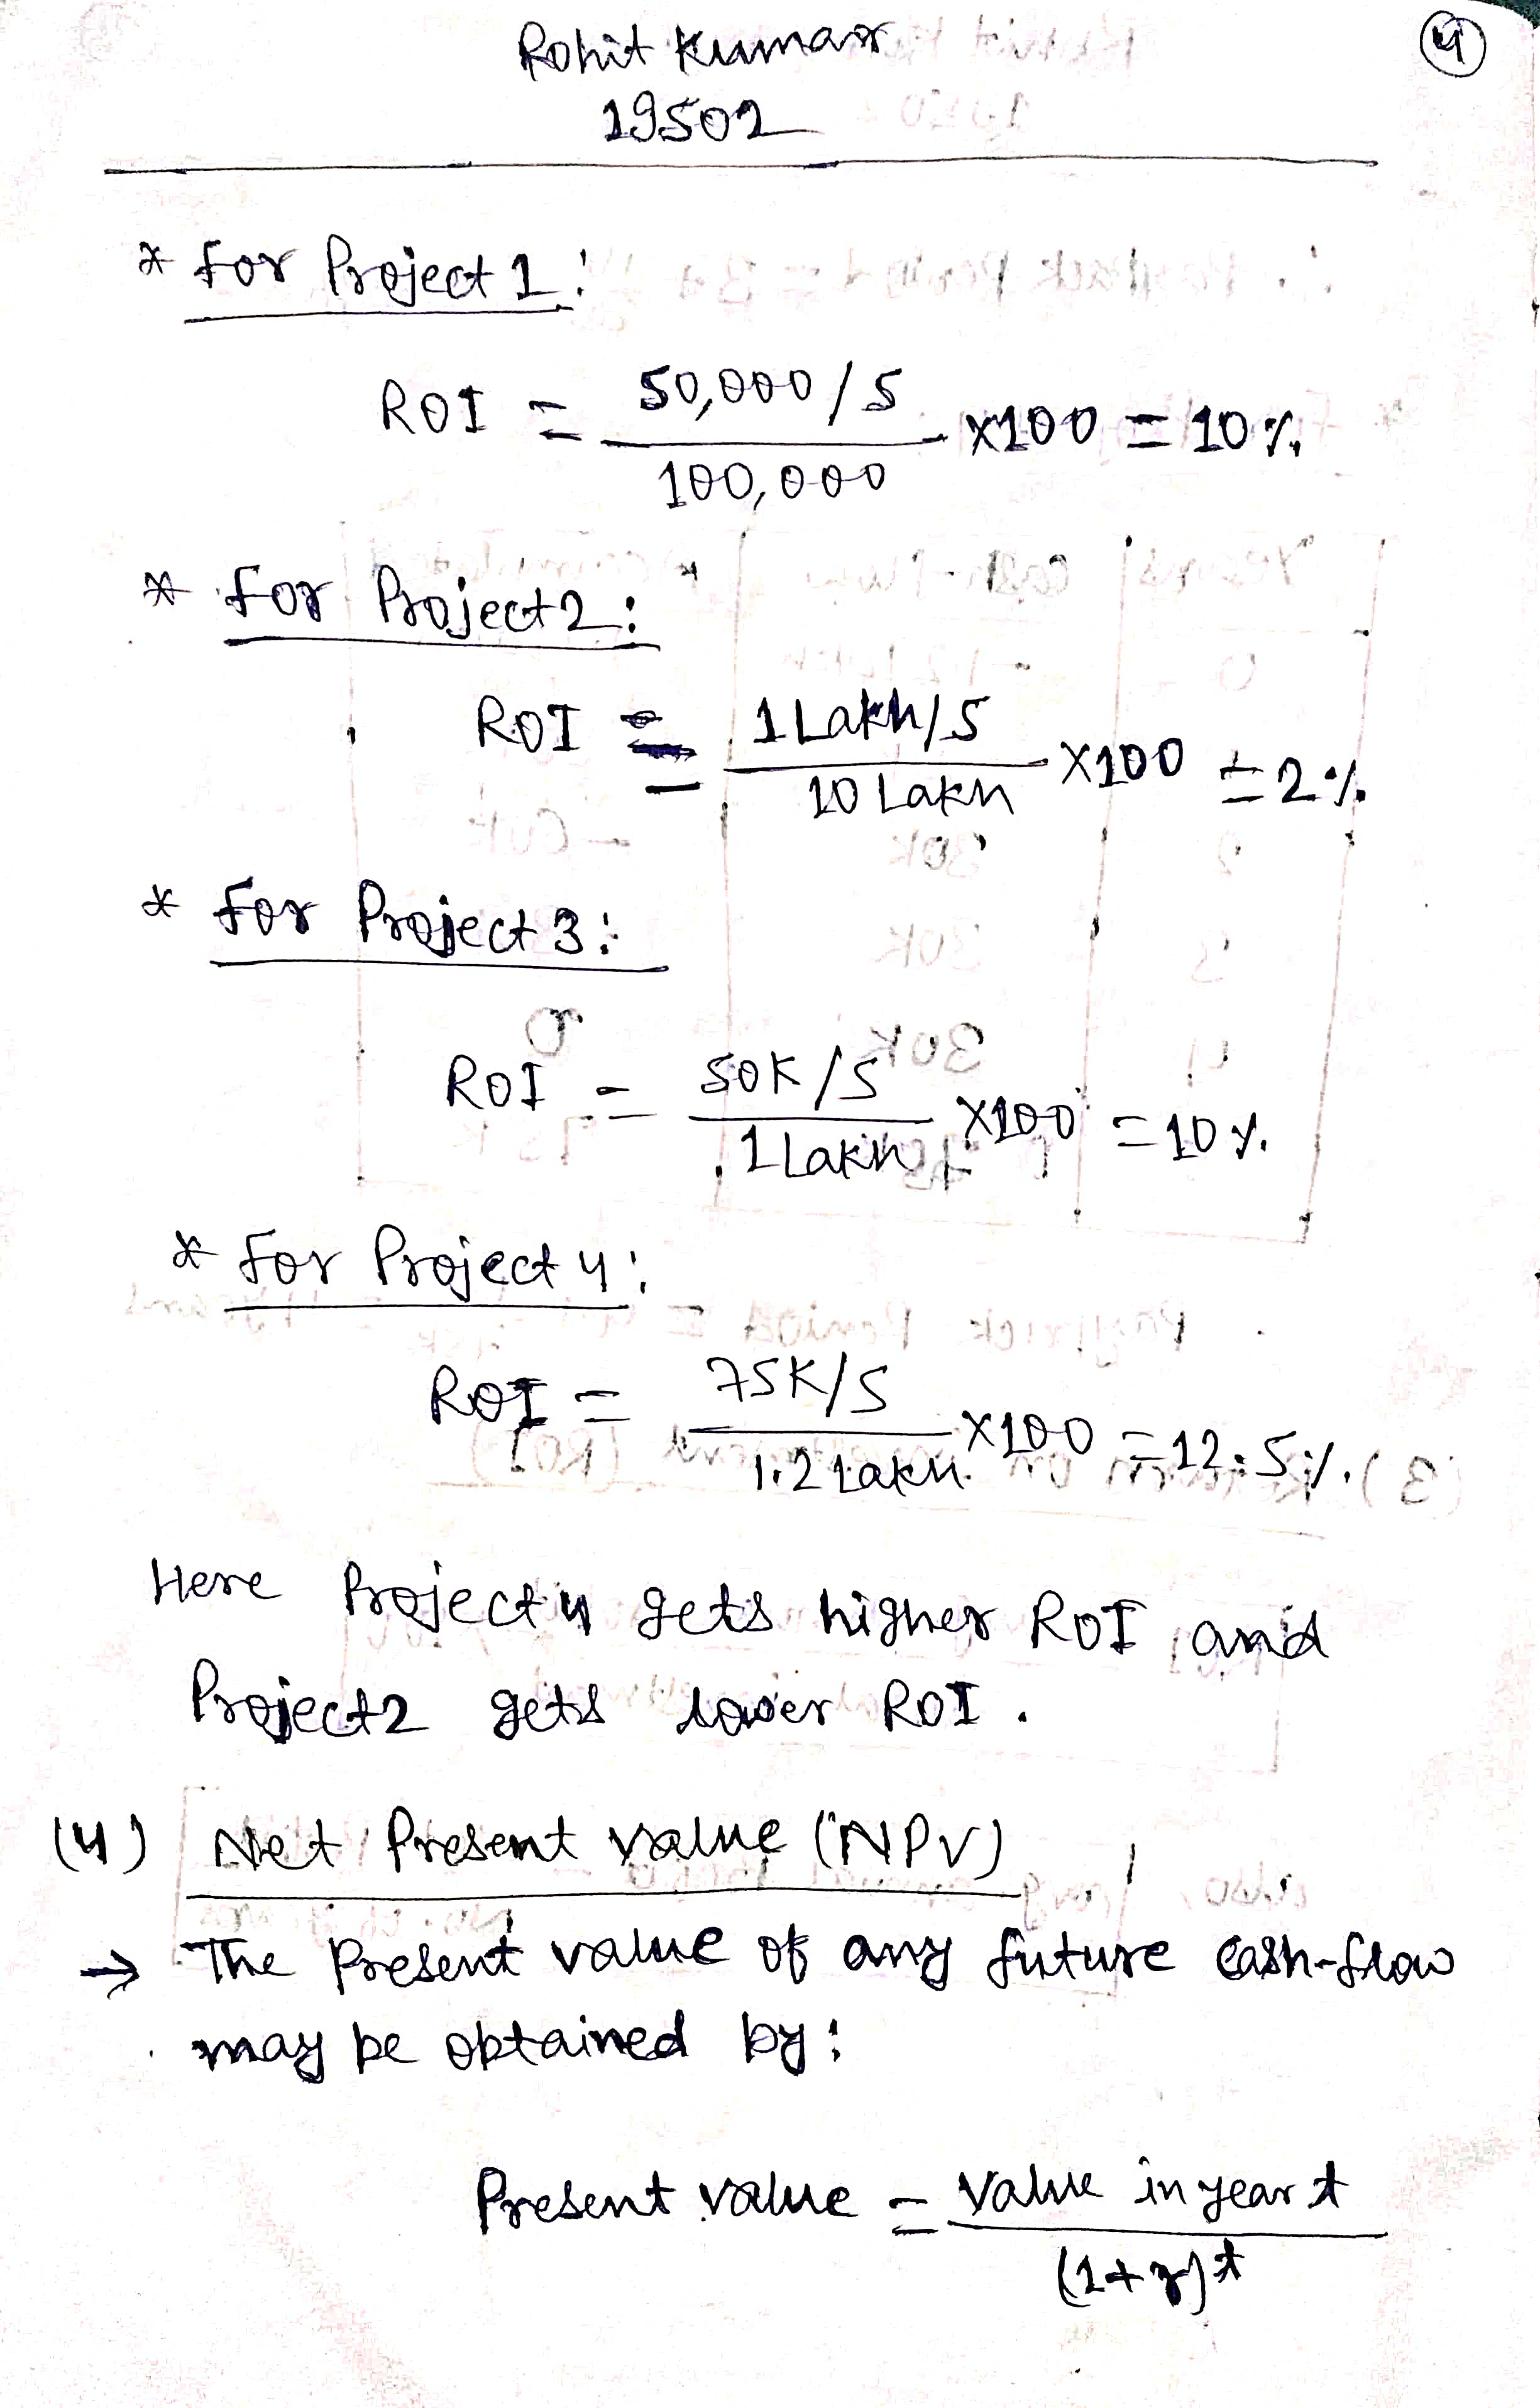 Rohit Kumar
4
19502
* For Project 1:
ROI = 50,000/5 / 100,000 X100 = 10%
* For Project2:
ROI = 1 Lakh/5 / 10 Lakh X100 = 2%
* For Project 3:
ROI = 50K/5 / 1 Lakh X100 = 10%
* For Project 4:
ROI = 75K/5 / 1.2 Lakh X100 = 12.5%
Here Project 4 gets higher ROI and
Project2 gets lower ROI.
(4) Net Present value (NPV)
→ The Present value of any future cash-flow
may be obtained by:
Present value = Value in year t / (1+r)^t